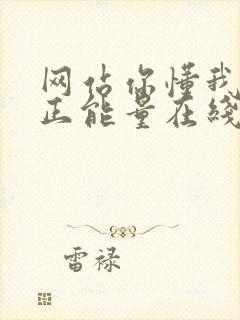 网站你懂我
正能量在线
雷禄